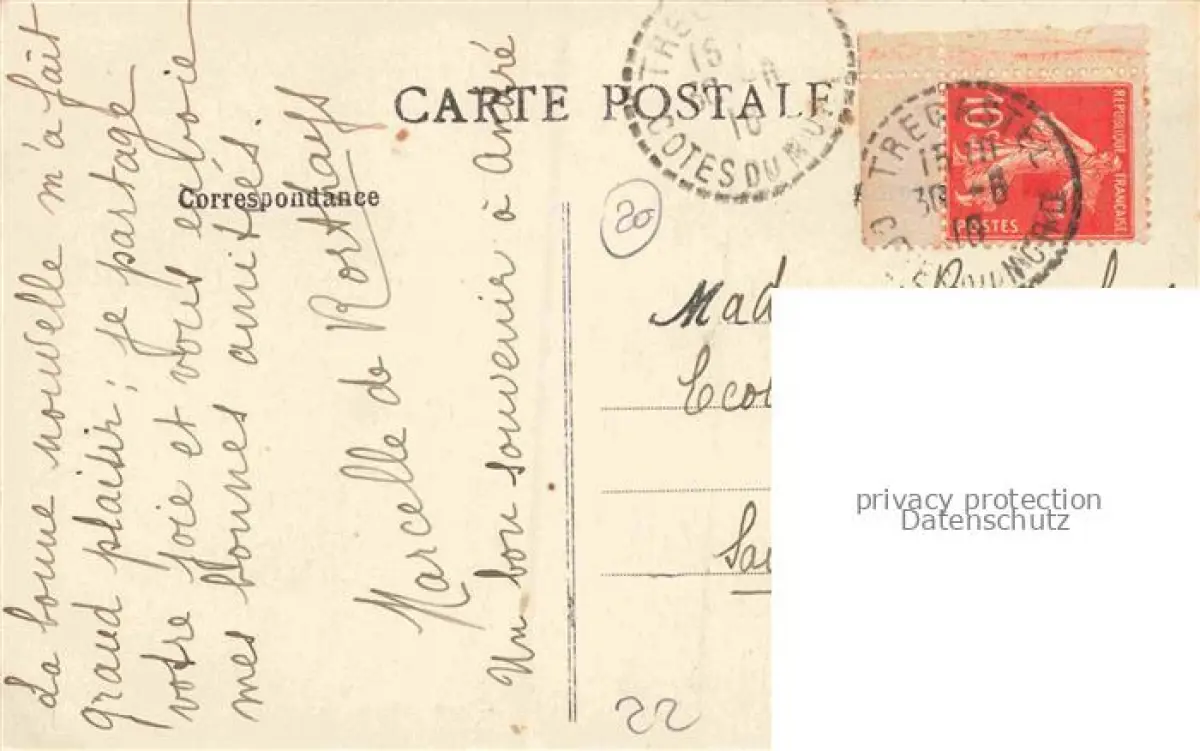 CARTE POSTALE
Correspondance
La bonne nouvelle m'a fait
grand plaisir ; je partage
votre joie et vous envoie
mes bonnes amitiés.
Marcelle de Rorthays
Un bon souvenir à André
15
10
COTES DU NORD
TREGASTEL
15 10
30 -8
10
10c
REPUBLIQUE FRANÇAISE
POSTES
20
Mad
Ecol
Sai
22
privacy protection
Datenschutz